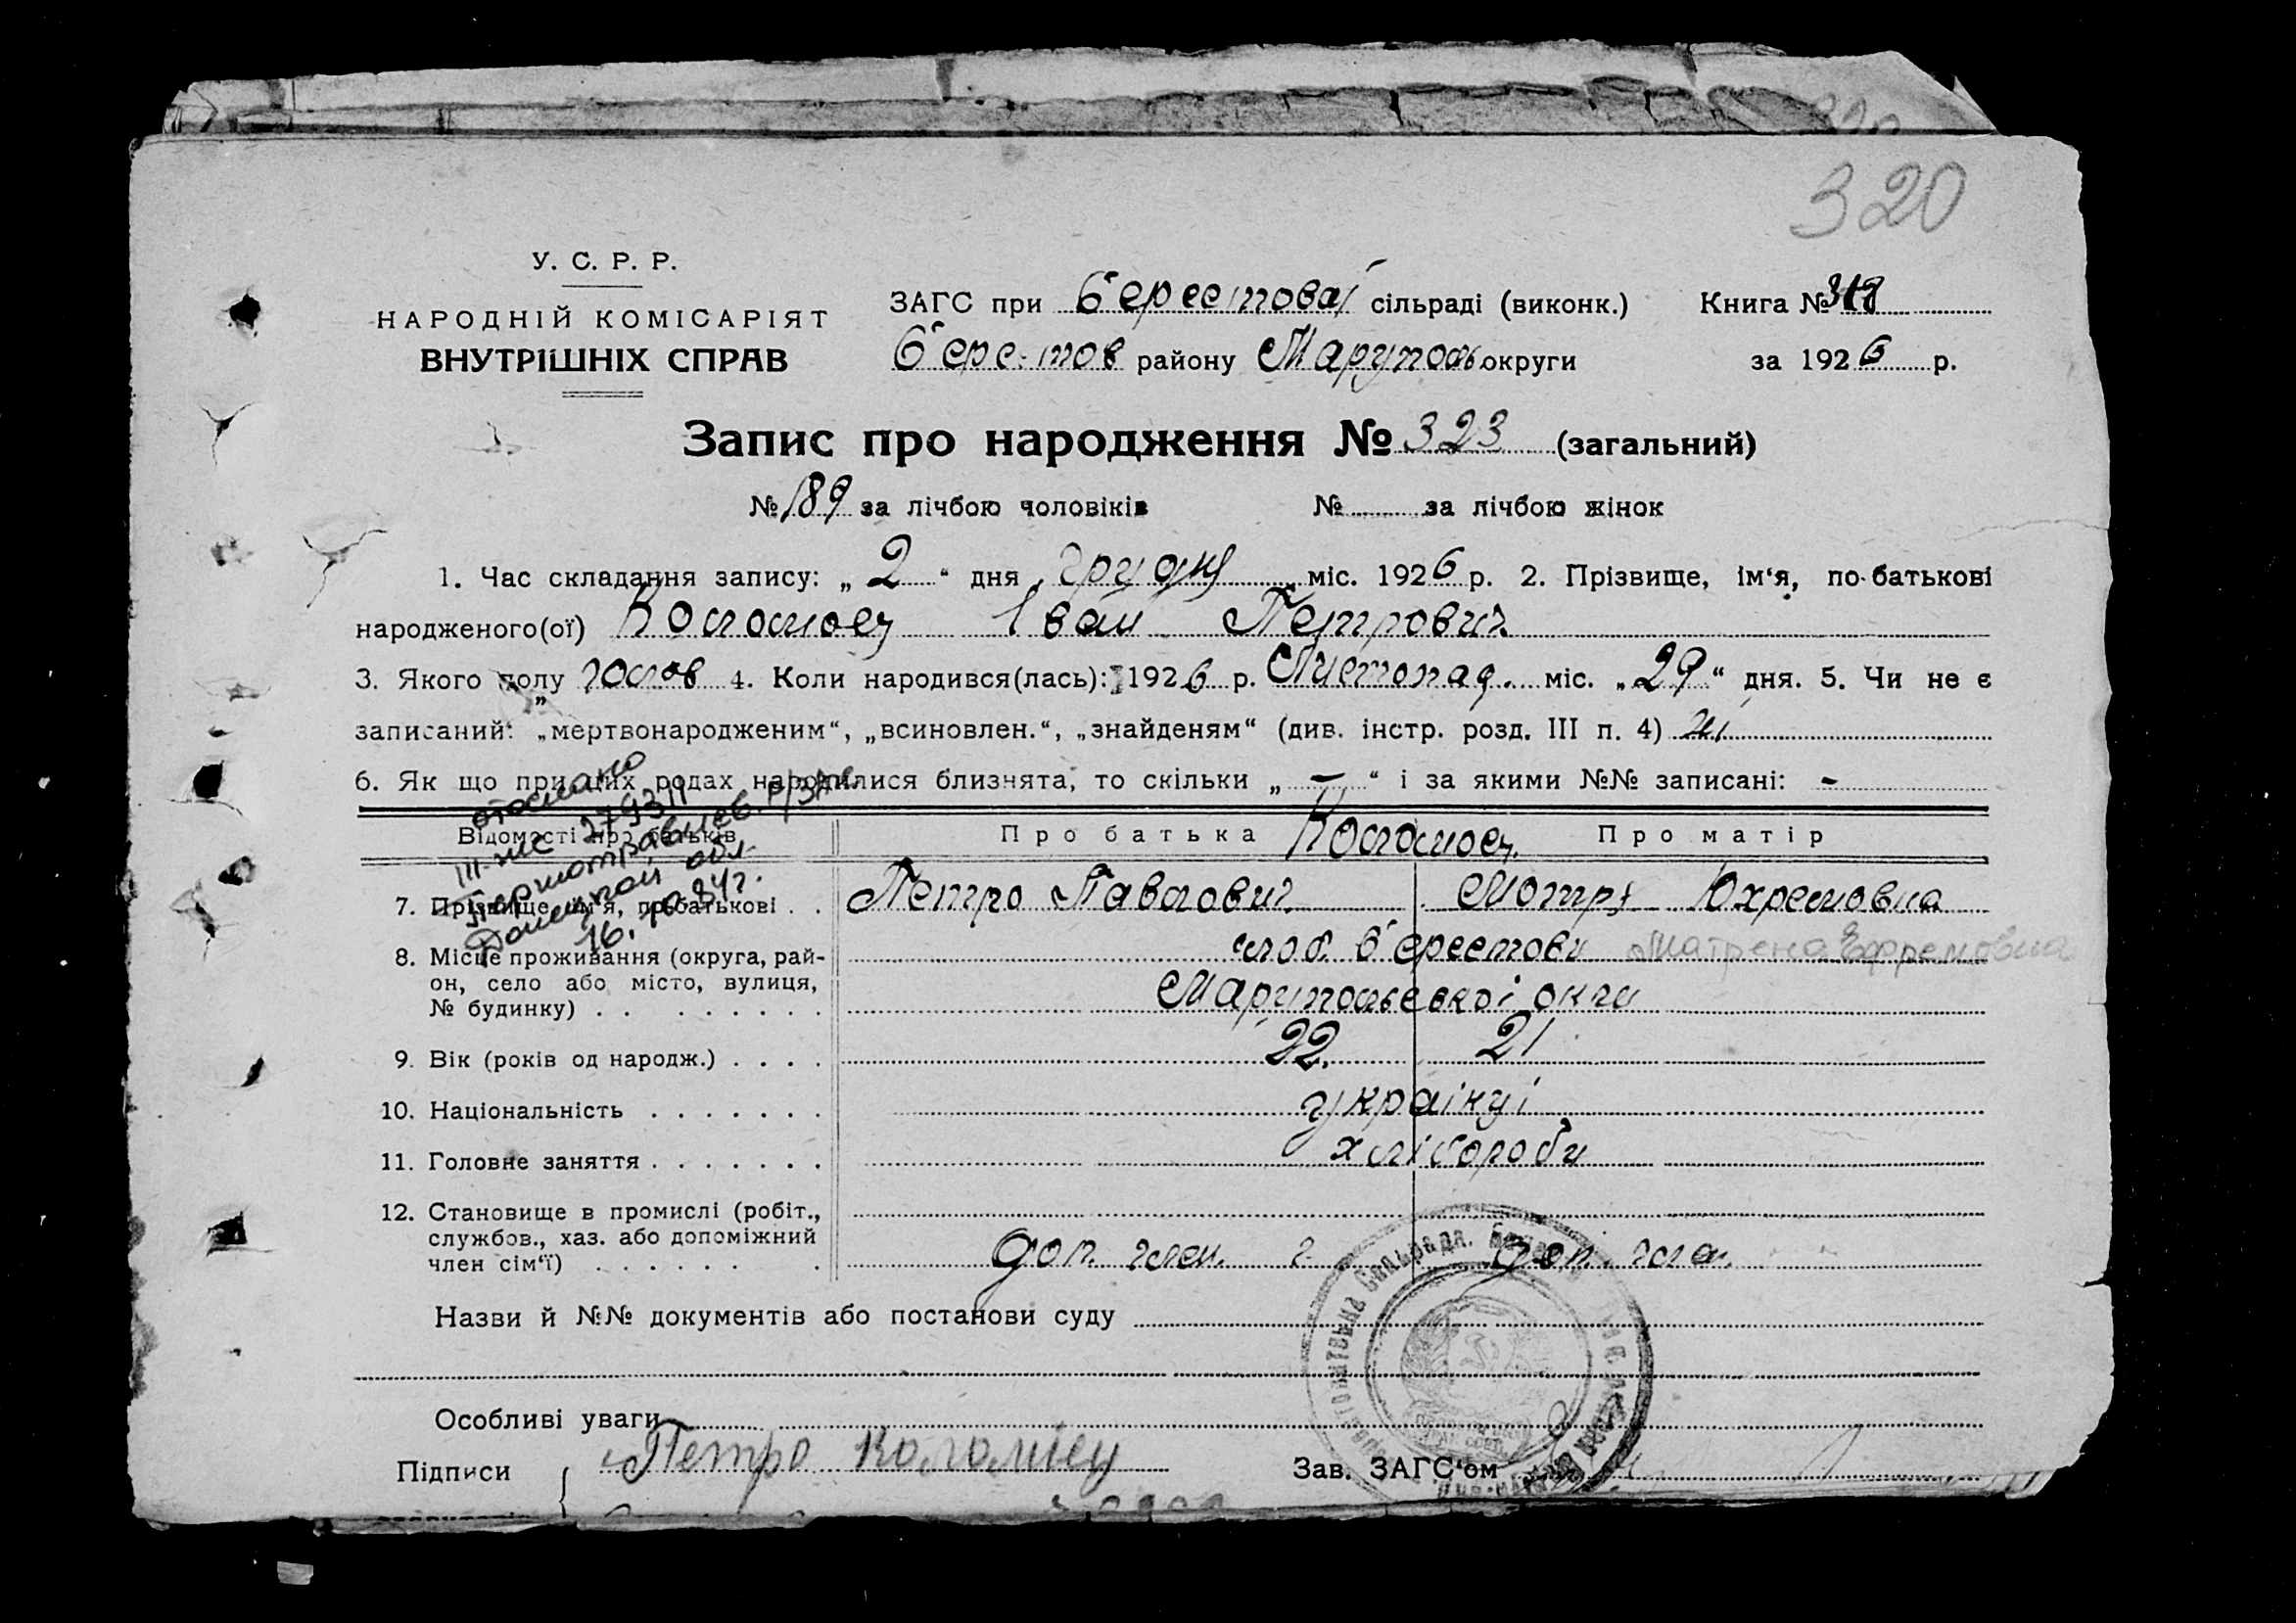 320
У. С. Р. Р.
НАРОДНІЙ КОМІСАРІЯТ
ВНУТРІШНІХ СПРАВ
ЗАГС при Берестовай сільраді (виконк.) Книга №
Берестов району Маруполь округи за 1926 р.
Запис про народження № 323 (загальний)
№ 189 за лічбою чоловіків № за лічбою жінок
1. Час складання запису: „ 2 “ дня грудня міс. 1926 р. 2. Прізвище, ім‘я, по-батькові
народженого(ої) Коломоец Іван Петрович
3. Якого полу чолов 4. Коли народився(лась): 1926 р. Листопад. міс. „ 29 “ дня. 5. Чи не є
записаний: „мертвонародженим“, „всиновлен.“, „знайденям“ (див. інстр. розд. III п. 4) ні
6. Як що при цих родах народилися близнята, то скільки „ — “ і за якими №№ записані: -
отослано
III-ЖС 279311
Першотравнев. р/ЗАГС
Донецкой обл.
16. 10 84г.
Відомості про батьків Про батька Коломоец. Про матір
7. Прізвище, ім‘я, по-батькові . . Петро Павлович Мотря Юхремовна
8. Місце проживання (округа, рай-
он, село або місто, вулиця,
№ будинку) . . . . . . . . . слоб. Берестови Матрена Ефремовна
Марупольскоі окги
9. Вік (років од народж.) . . . . 22. 21
10. Національність . . . . . . . украінці
11. Головне заняття . . . . . . . хлібороби
12. Становище в промислі (робіт.,
службов., хаз. або допоміжний
член сім‘ї) . . . . . . . доп. член. доп. чла.
Назви й №№ документів або постанови суду
Особливі уваги
Підписи Петро Коломіец Зав. ЗАГС‘ом